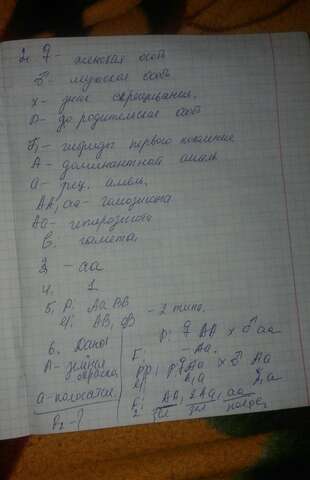 2. ♀ - женская особь
♂ - мужская особь
х - знак скрещивания.
P - до родительские особ
F₁ - гибриды первого поколения
А - доминантной аллель
а - рец. аллель.
АА, аа - гомозигота
Аа - гетерозигота
G: гамета.
3 - аа
4. 1
5. P: Аа ВВ - 2 типа.
G: АВ, аВ
6. Дано: P: ♀ АА х ♂ аа
А - зелёная окраска F₁: Аа.
P: ♀ Аа х ♂ Аа
а - полосатая G: А,а А,а
F₂ - ? F₂: АА, 2Аа, аа
зел зел полос.